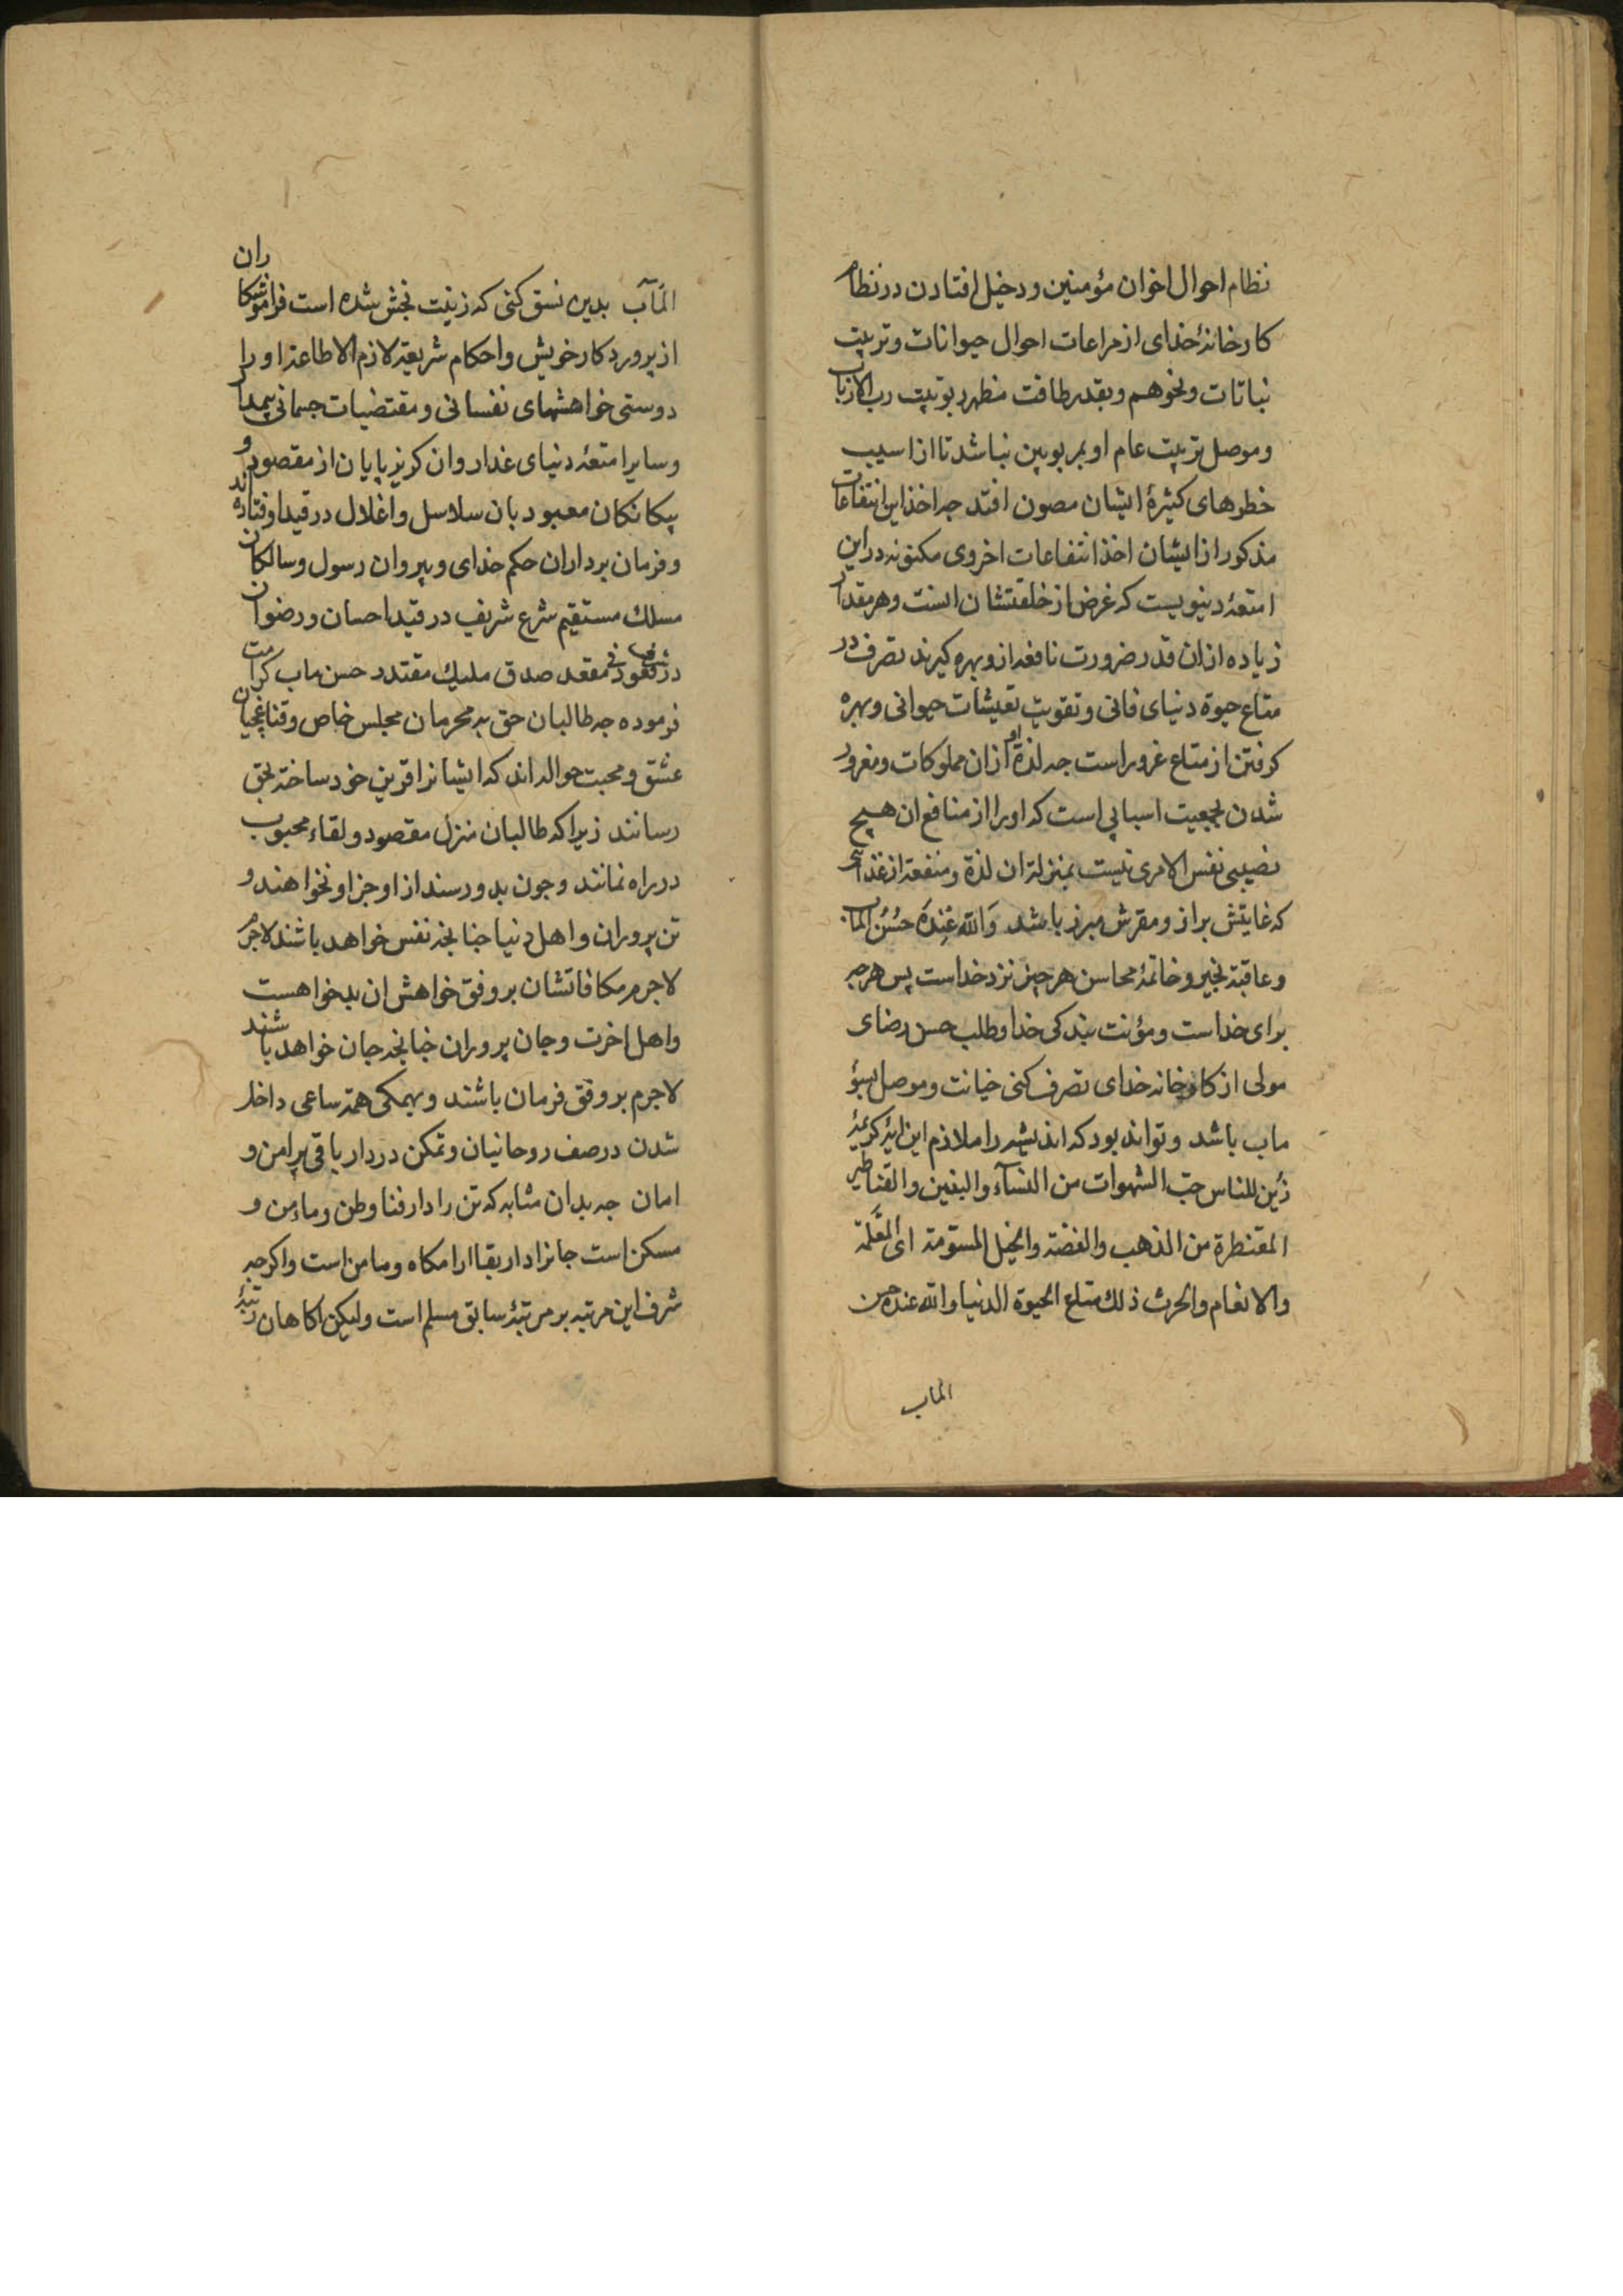 نظام احوال اخوان مؤمنین و دخیل افتادن در نظام
کارخانهٔ خدای از مراعات احوال حیوانات و تربیت
نباتات و نحو هم و بقدر طاقت مظهر ربوبیت رب الارباب
و موصل تربیت عام او بمربوبین نباشد تا از اسیب
خطرهای کثیرهٔ ایشان مصون افتد جه اخذ این انتفاعات
مذکور از ایشان اخذ انتفاعات اخروی مکنونه در این
امتعهٔ دنیویست که غرض از خلقتشان انست و هر مقدار
زیاده از ان قدر ضرورت نافعه از و بهره کیرند تصرف در
متاع حیوة دنیای فانی و تقویت تعیشات حیوانی و بهره
کرفتن از متاع غرور است جه لذة او از ان مملوکات و مغرور
شدن بجمعیت اسبابی است که او را از منافع ان هیج
نصیبی نفس الامری نیست بمنزلهٔ ان لذة و منفعة از غذائی
که غایتش براز و مقرش مبرز باشد وَالله عِندَهُ حُسنُ الماب
و عاقبة بخیر و خاتمهٔ محاسن هر چیز نزد خداست پس هر جه
برای خداست و مؤنت بندکی خدا و طلب حسن رضای
مولی از کارخانه خدای تصرف کنی خیانت و موصل بسؤ
ماب باشد و تواند بود که اندیشه را ملازم این ایهٔ کریمهٔ
زُین للناس حبّ الشهوات من النسآء والبنین والقناطیر
المقنطرة من الذهب والفضة والخیل المسوّمة ای المعَلَّمة
والانعام والحرث ذلك متاع الحیوة الدنیا والله عنده حسن
الماب
المَآب بدین نسق کنی که زینت بخش شده است فراموشکاران
از پروردکار خویش و احکام شریعة لازم الاطاعة او را
دوستی خواهشهای نفسانی و مقتضیات جسمانی بیمدار
و سایر امتعهٔ دنیای غدار و ان کریز پایان از مقصود و
بیکانکان معبود بان سلاسل و اغلال در قید اوفتاده اند
و فرمان برداران حکم خدای و پیروان رسول و سالکان
مسلك مستقیم شرع شریف در قید احسان و رضوان
در قعود فی مقعد صدق ملیك مقتدر حسن ماب کرامت
فرموده جه طالبان حق به محرمان مجلس خاص و
عشق و محبت حواله اند که ایشانرا قرین خود ساخته بحق
رسانند زیرا که طالبان منزل مقصود و لقاء محبوب
در راه نمانند و جون بدو رسند از او جز او نخواهند و
تن پروران و اهل دنیا جنانجه نفس خواهد باشند لاجرم
لاجرم مکافاتشان بر وفق خواهش ان بدخواهست
و اهل اخرت و جان پروران جنانجه جان خواهد باشند
لاجرم بر وفق فرمان باشند و بهمکی همة ساعی داخل
شدن در صف روحانیان و تمکن در دار باقی پر امن و
امان جه بدان مثابه که تن را دار فنا وطن و مامن و
مسکن است جانرا دار بقا ارامکاه و مامن است و اکرجه
شرف این مرتبه بر مرتبهٔ سابق مسلم است و لیکن اکاهان رتبهٔ